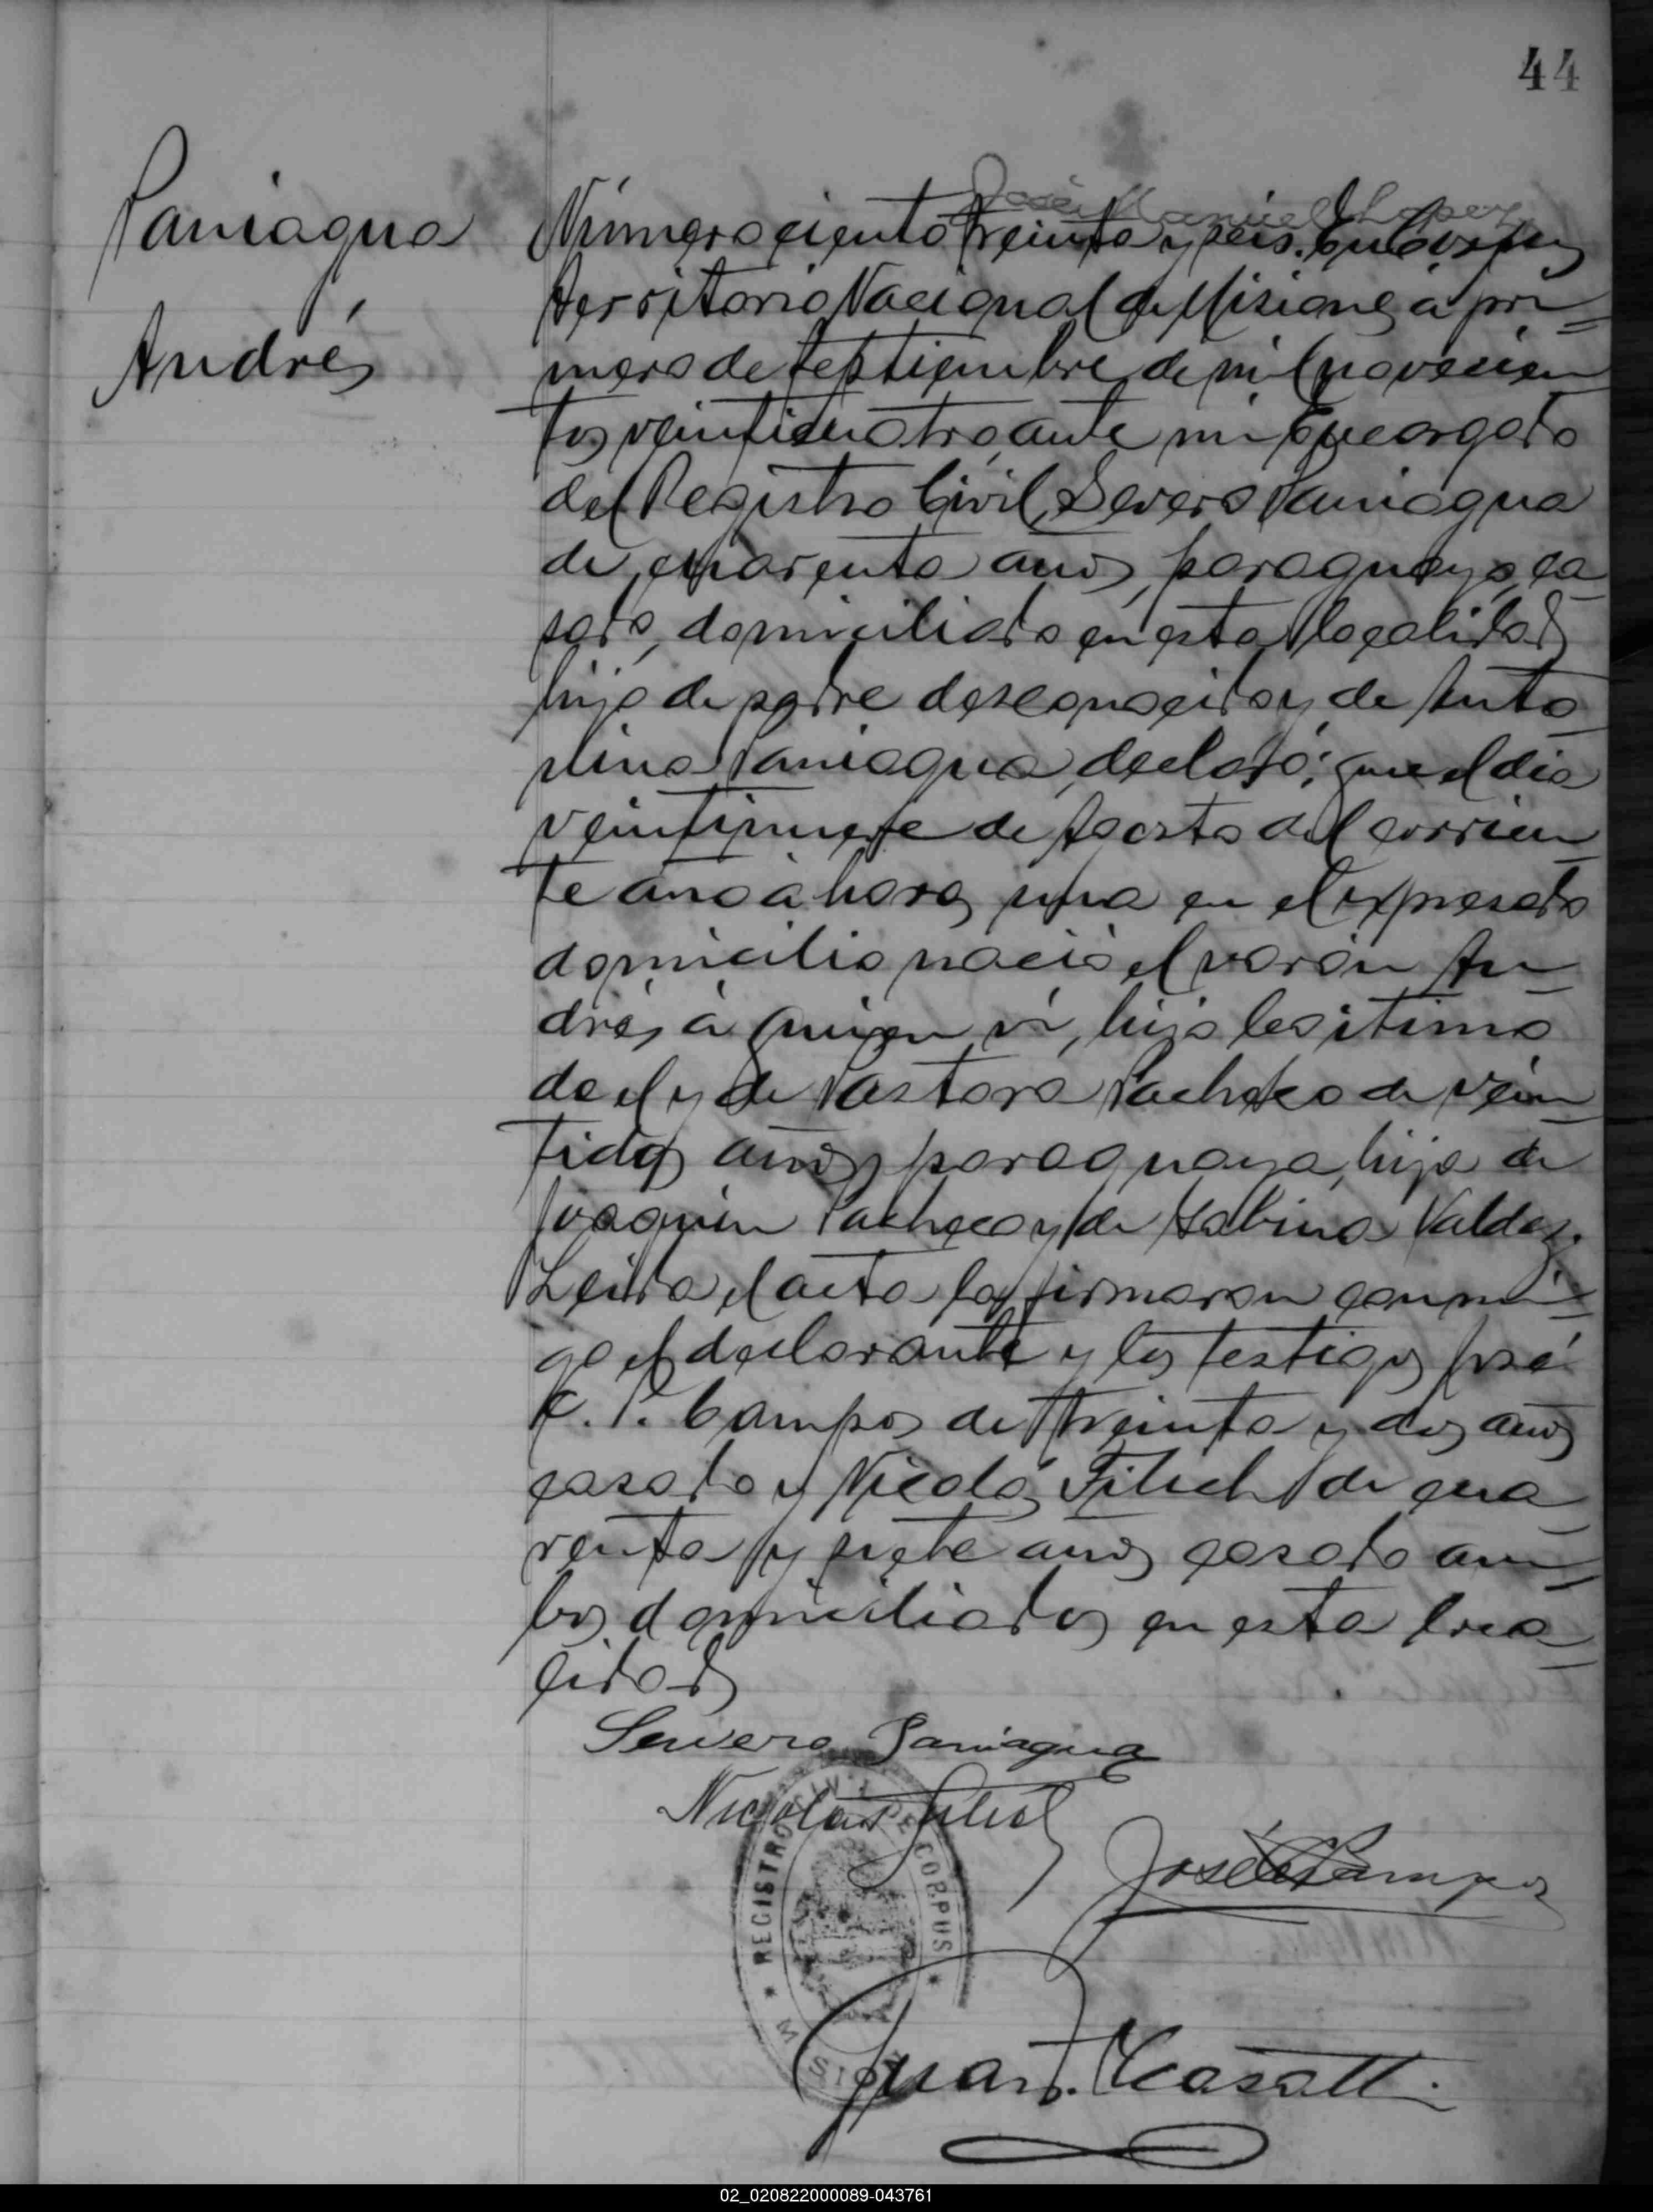 44
Paniagua
Andrés
José Manuel Lopez
Número ciento treinta y seis. En Corpus
Territorio Nacional de Misiones a pri=
mero de Septiembre de mil novecien
tos veinticuatro, ante mi Encargado
del Registro Civil, Severo Paniagua
de cuarenta años, paraguayo, ca
sado, domiciliado en esta localidad
hijo de padre desconocido y de
Paniagua, declaró; que el dia
veintinueve de Agosto del corrien
te año a horas una en el expresado
domicilio nació el varón An
drés, á quien ví, hijo legitimo
de el y de Pastora Pacheco de vein
tidos años, paraguaya, hija de
Joaquin Pacheco y de Sabina Valdez.
Leida el acta la firmaron conmi
go el declarante y los testigos José
C. P. Campos de treinta y dos años
casado y Nicolás Filich de cua
renta y siete años casado am
bos domiciliados en esta loca
lidad
Severo Paniagua
Nicolas Filich
José C P Campos
REGISTRO CIVIL DE CORPUS
MISIONES
Juan Casatti.
02_020822000089-043761